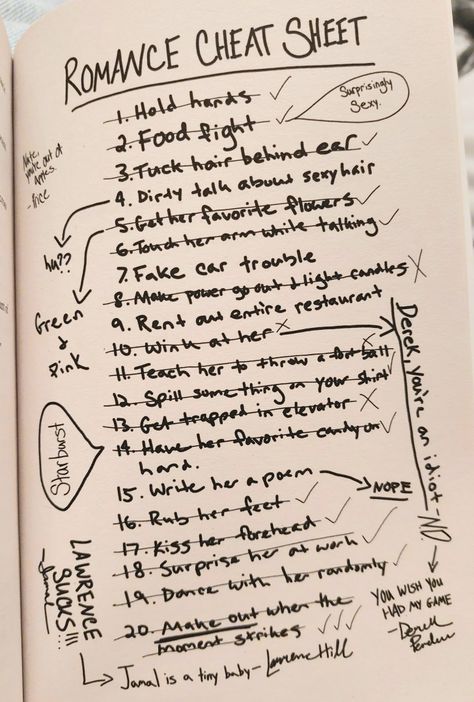 ROMANCE CHEAT SHEET
1. Hold hands ✓
2. Food fight ✓
Surprisingly
Sexy.
3. Tuck hair behind ear ✓
Note,
we're out of
apples.
4. Dirty talk about sexy hair
hu??
5. Get her favorite flowers ✓
Green
&
pink
6. Touch her arm while talking ✓
7. Fake car trouble
8. Make power go out & light candles X
9. Rent out entire restaurant
10. Wink at her X
Derek, you're an idiot -ND
11. Teach her to throw a football X
12. Spill something on your shirt ✓
13. Get trapped in elevator X
14. Have her favorite candy on ✓
hand.
Starburst
15. Write her a poem
NOPE
16. Rub her feet ✓
17. Kiss her forehead ✓
18. Surprise her at work ✓
19. Dance with her randomly ✓
20. Make out when the
moment strikes ✓✓✓
YOU WISH YOU
HAD MY GAME
-Derek
LAWRENCE
SUCKS!!!
-Jamal
Jamal is a tiny baby - Lawrence Hill